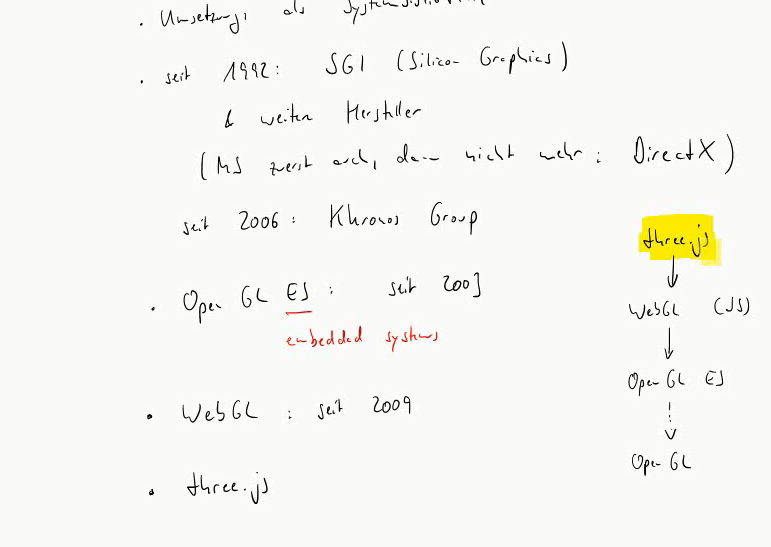 · Umsetzung: als
· seit 1992: SGI (Silicon Graphics)
& weitere Hersteller
(MS zuerst auch, dann nicht mehr: DirectX)
seit 2006: Khronos Group
three.js
WebGL (JS)
OpenGL ES
OpenGL
· OpenGL ES : seit 2003
embedded systems
· WebGL : seit 2009
· three.js